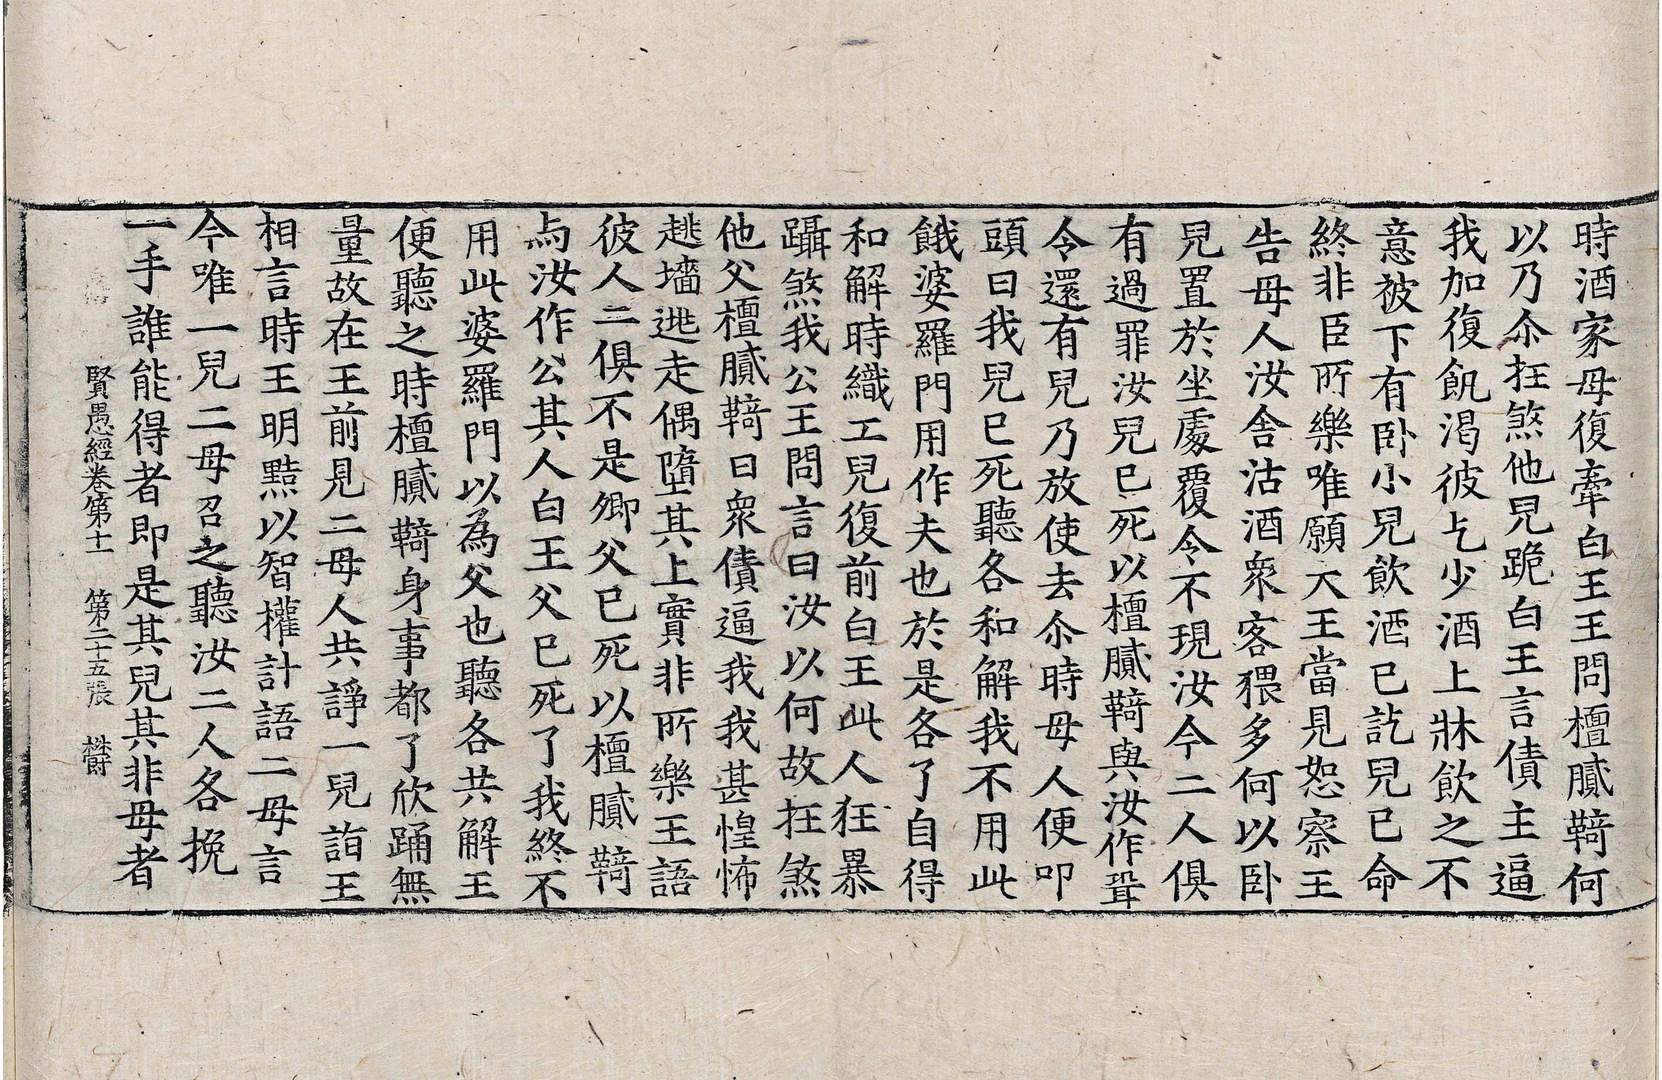 時酒家母復牽白王王問檀膩䩭何
以乃尒抂煞他兒跪白王言債主逼
我加復飢渴彼乞少酒上牀飲之不
意被下有卧小兒飲酒已訖兒已命
終非臣所樂唯願天王當見恕察王
告母人汝舍沽酒衆客猥多何以卧
兒置於坐處覆令不現汝今二人俱
有過罪汝兒已死以檀膩䩭與汝作聟
令還有兒乃放使去尒時母人便叩
頭曰我兒已死聽各和解我不用此
餓婆羅門用作夫也於是各了自得
和解時織工兒復前白王此人狂暴
躡煞我公王問言曰汝以何故抂煞
他父檀膩䩭曰衆債逼我我甚惶怖
趒墻逃走偶墮其上實非所樂王語
彼人二俱不是卿父已死以檀膩䩭
与汝作公其人白王父已死了我終不
用此婆羅門以為父也聽各共解王
便聽之時檀膩䩭身事都了欣踊無
量故在王前見二母人共諍一兒詣王
相言時王明黠以智權計語二母言
今唯一兒二母召之聽汝二人各挽
一手誰能得者即是其兒其非母者
賢愚經卷第十一 第二十五張 欝